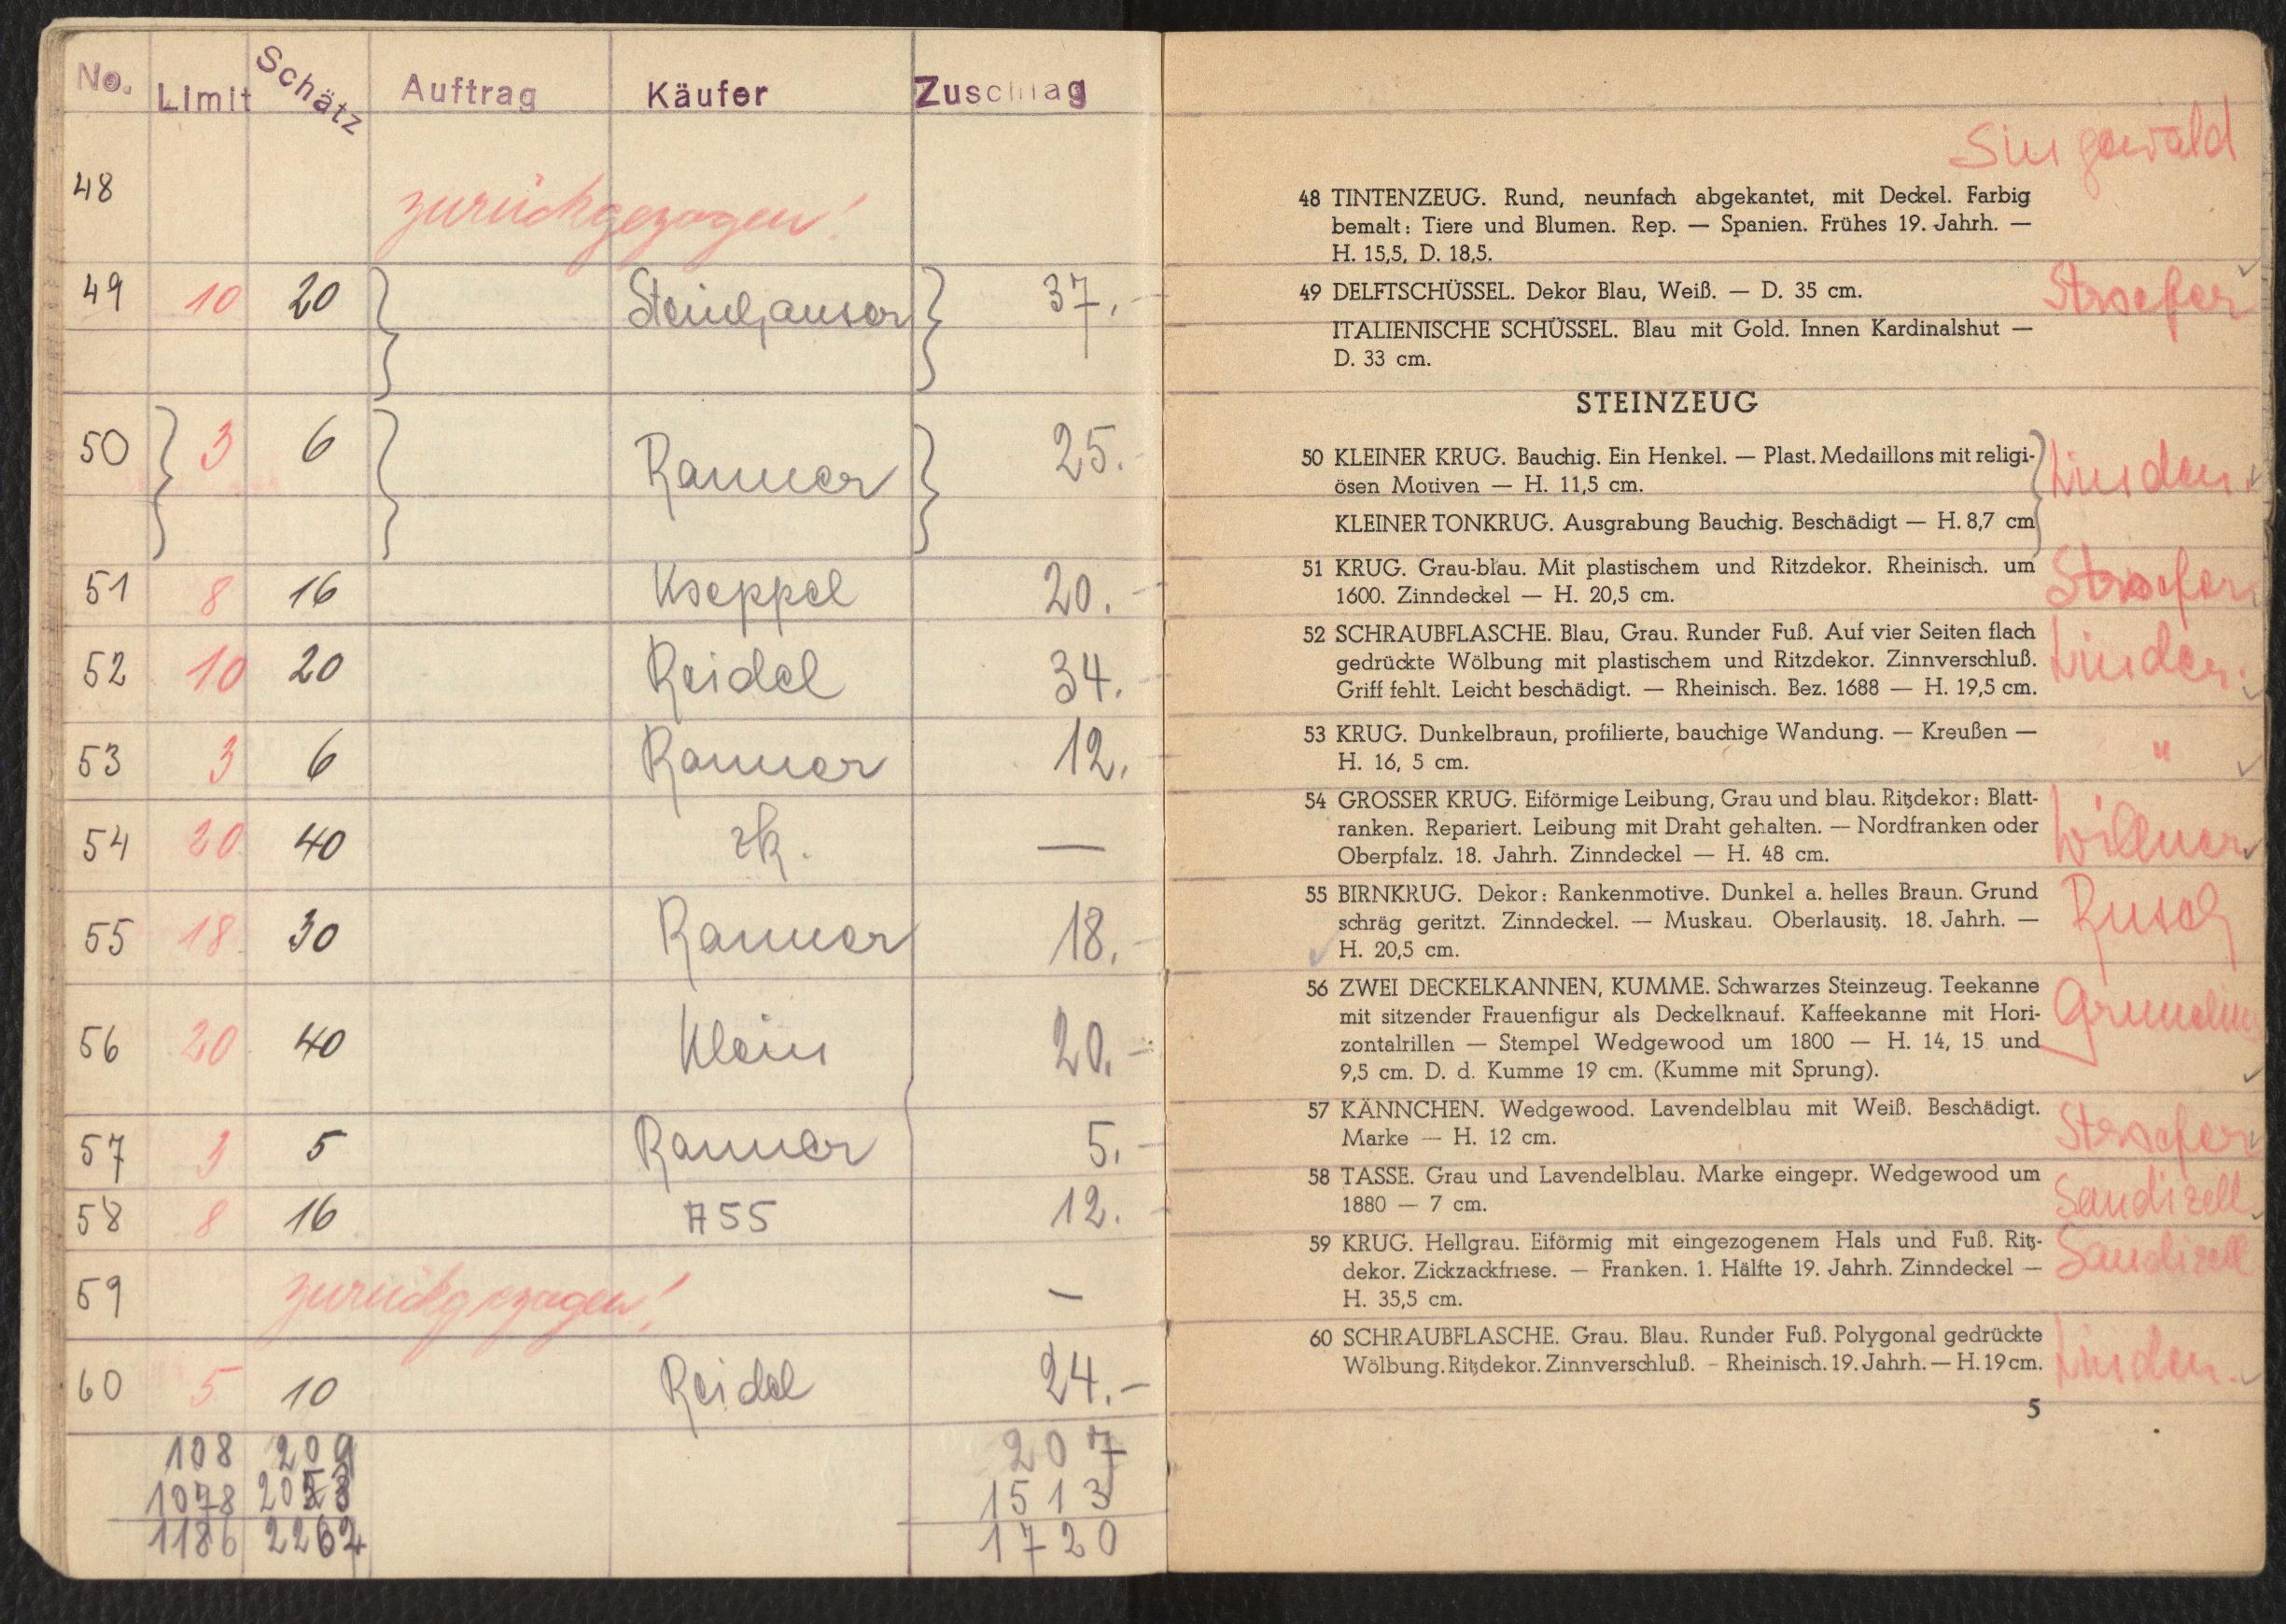 No. Limit Schätz Auftrag Käufer Zuschlag
48 zurückgezogen!
49 10 20 Steinhauser 37.-
50 3 6 Ranner 25.-
51 8 16 Koeppel 20.-
52 10 20 Reidel 34.-
53 3 6 Ranner 12.
54 20 40 zk. —
55 18 30 Ranner 18.-
56 20 40 Klein 20.-
57 3 5 Ranner 5.-
58 8 16 A55 12.-
59 zurückgezogen! —
60 5 10 Reidel 24.-
108 209 207
1078 2053 1513
1186 2262 1720
Singewald
48 TINTENZEUG. Rund, neunfach abgekantet, mit Deckel. Farbig
bemalt: Tiere und Blumen. Rep. — Spanien. Frühes 19. Jahrh. —
H. 15,5, D. 18,5.
49 DELFTSCHÜSSEL. Dekor Blau, Weiß. — D. 35 cm. Stroefer
ITALIENISCHE SCHÜSSEL. Blau mit Gold. Innen Kardinalshut —
D. 33 cm.
STEINZEUG
50 KLEINER KRUG. Bauchig. Ein Henkel. — Plast. Medaillons mit religi- Linden
ösen Motiven — H. 11,5 cm.
KLEINER TONKRUG. Ausgrabung Bauchig. Beschädigt — H. 8,7 cm
51 KRUG. Grau-blau. Mit plastischem und Ritzdekor. Rheinisch. um Stroefer
1600. Zinndeckel — H. 20,5 cm.
52 SCHRAUBFLASCHE. Blau, Grau. Runder Fuß. Auf vier Seiten flach Linden
gedrückte Wölbung mit plastischem und Ritzdekor. Zinnverschluß.
Griff fehlt. Leicht beschädigt. — Rheinisch. Bez. 1688 — H. 19,5 cm.
53 KRUG. Dunkelbraun, profilierte, bauchige Wandung. — Kreußen — "
H. 16, 5 cm.
54 GROSSER KRUG. Eiförmige Leibung, Grau und blau. Ritzdekor: Blatt- Willner
ranken. Repariert. Leibung mit Draht gehalten. — Nordfranken oder
Oberpfalz. 18. Jahrh. Zinndeckel — H. 48 cm.
55 BIRNKRUG. Dekor: Rankenmotive. Dunkel a. helles Braun. Grund Rusch
schräg geritzt. Zinndeckel. — Muskau. Oberlausitz. 18. Jahrh. —
H. 20,5 cm.
56 ZWEI DECKELKANNEN, KUMME. Schwarzes Steinzeug. Teekanne
mit sitzender Frauenfigur als Deckelknauf. Kaffeekanne mit Hori-
zontalrillen — Stempel Wedgewood um 1800 — H. 14, 15 und
9,5 cm. D. d. Kumme 19 cm. (Kumme mit Sprung).
57 KÄNNCHEN. Wedgewood. Lavendelblau mit Weiß. Beschädigt. Stroefer
Marke — H. 12 cm.
58 TASSE. Grau und Lavendelblau. Marke eingepr. Wedgewood um Sandizell
1880 — 7 cm.
59 KRUG. Hellgrau. Eiförmig mit eingezogenem Hals und Fuß. Ritz- Sandizell
dekor. Zickzackfriese. — Franken. 1. Hälfte 19. Jahrh. Zinndeckel —
H. 35,5 cm.
60 SCHRAUBFLASCHE. Grau. Blau. Runder Fuß. Polygonal gedrückte Linden
Wölbung. Ritzdekor. Zinnverschluß. – Rheinisch. 19. Jahrh. — H. 19 cm.
5